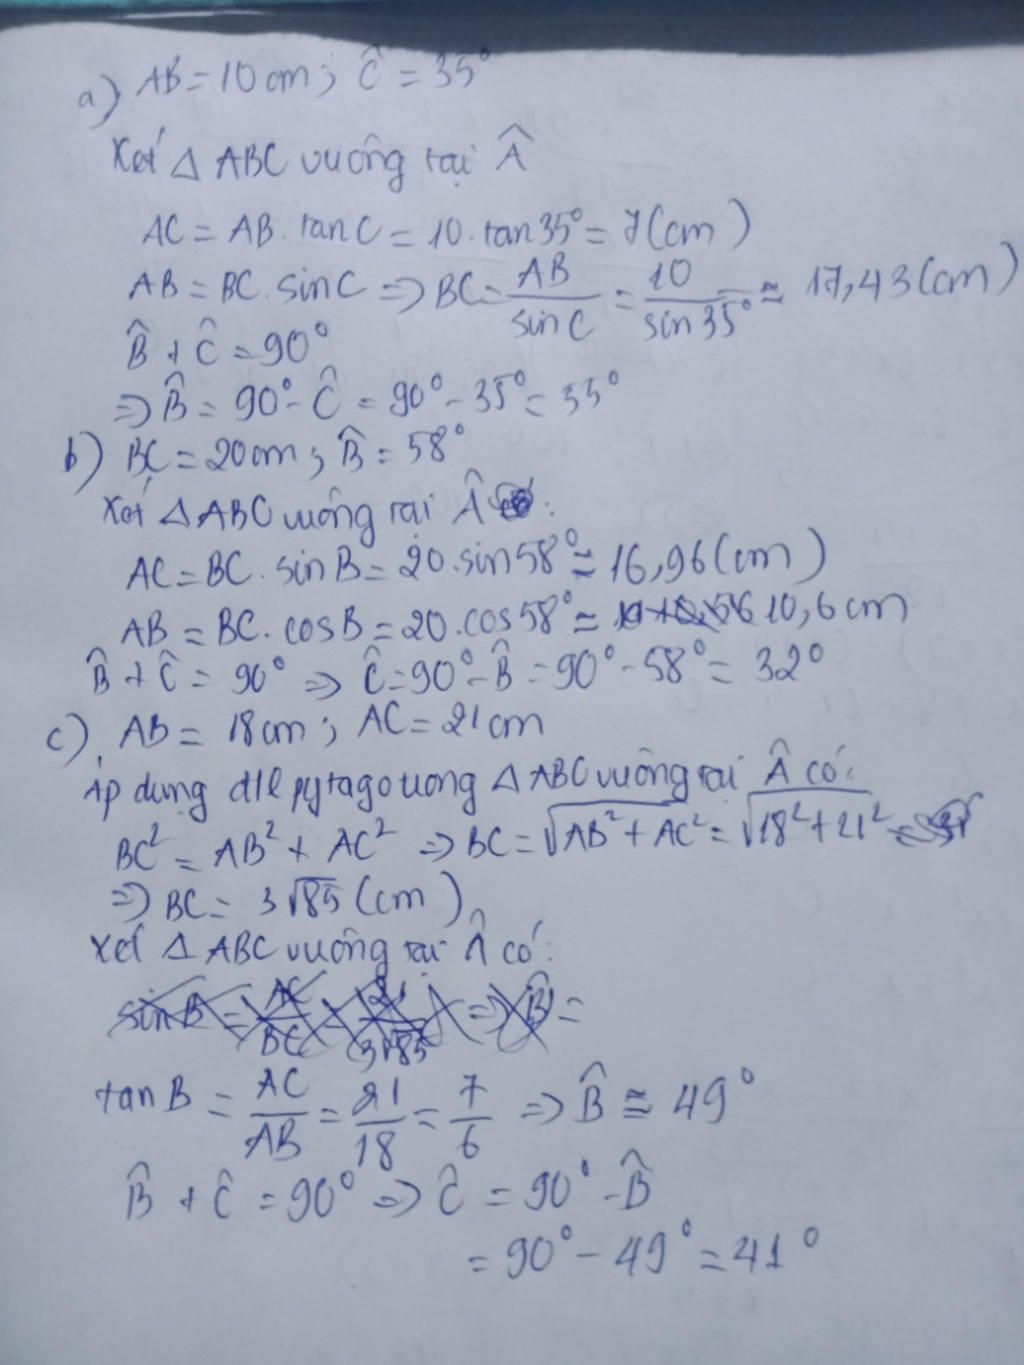 a) AB = 10cm ; Ĉ = 35°
Xét Δ ABC vuông tại Â
AC = AB. tanC = 10. tan35° = 7(cm)
AB = BC. sinC => BC = AB/sinC = 10/sin35° ≈ 17,43(cm)
B̂ + Ĉ = 90°
=> B̂ = 90° - Ĉ = 90° - 35° = 55°
b) BC = 20cm ; B̂ = 58°
Xét Δ ABC vuông tại Â :
AC = BC . sinB = 20.sin58° ≈ 16,96(cm)
AB = BC. cosB = 20.cos58° ≈ 10,6cm
B̂ + Ĉ = 90° => Ĉ = 90° - B̂ = 90° - 58° = 32°
c) AB = 18cm ; AC = 21cm
Áp dụng đlí pytago trong Δ ABC vuông tại Â có:
BC² = AB² + AC² => BC = √AB² + AC² = √18² + 21² =
=> BC = 3√85 (cm)
Xét Δ ABC vuông tại Â có:
sinB = AC/BC = 21/3√85 => B̂ =
tan B = AC/AB = 21/18 = 7/6 => B̂ ≅ 49°
B̂ + Ĉ = 90° => Ĉ = 90° - B̂
= 90° - 49° = 41°